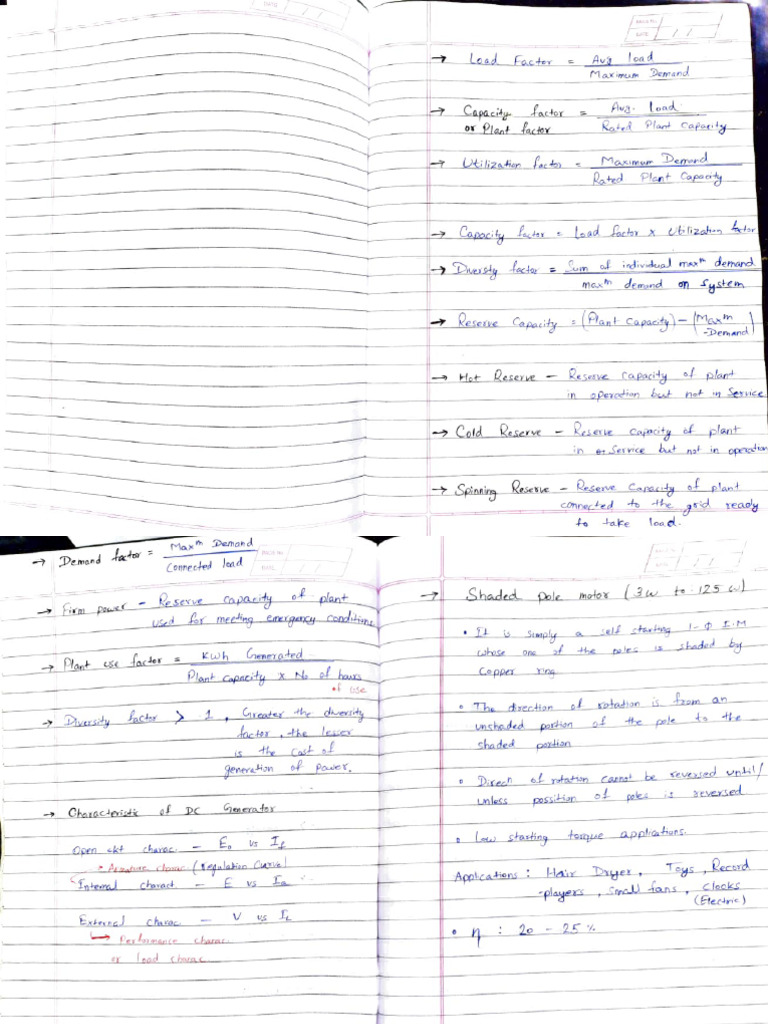 DATE
PAGE No.
DATE
→ Load Factor = Avg load / Maximum Demand
→ Capacity factor or Plant factor = Avg. load / Rated Plant Capacity
→ Utilization factor = Maximum Demand / Rated Plant Capacity
→ Capacity factor = Load factor x Utilization factor
→ Diversty factor = Sum of individual maxᵐ demand / maxᵐ demand on system
→ Reserve Capacity = (Plant Capacity) - (Maxᵐ -Demand)
→ Hot Reserve - Reserve capacity of plant
in operation but not in Service
→ Cold Reserve - Reserve capacity of plant
in Service but not in operation
→ Spinning Reserve - Reserve Capacity of plant
connected to the grid ready
to take load.
→ Demand factor = Maxᵐ Demand / Connected load
DATE
→ Firm power - Reserve capacity of plant
used for meeting emergency conditions
→ Plant use factor = KWh Generated / Plant capacity x No of hours of use
→ Diversity factor > 1, Greater the diversity
factor, the lower
is the cost of
generation of power.
→ Characteristic of DC Generator
Open ckt charac. - E₀ vs If
Armature charac (Regulation Curve)
Internal charact - E vs Ia
External charac. - V vs IL
↳ Performance charac
or load charac
→ Shaded pole motor (3w to 125 w)
• It is simply a self starting 1-Φ I.M
whose one of the poles is shaded by
Copper ring.
• The direction of rotation is from an
unshaded portion of the pole to the
shaded portion
• Direcn of rotation cannot be reversed until/
unless possition of poles is reversed
• Low starting torque applications.
Applications : Hair Dryer, Toys, Record
-players, small fans, clocks
(Electric)
• η : 20 - 25 %